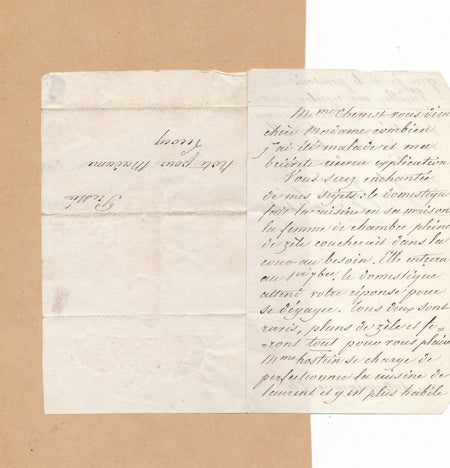 Mme Chenest vous dira
chère Madame combien
j'ai été malade et ma
brièveté
Vous serez enchantée
de mes sujets; le domestique
fait la cuisine en sa maison
la femme de chambre pleine
de zèle coucherait dans la
cour au besoin. Elle entrera
au 1er 7bre le domestique
attend votre réponse pour
se dégager. Tous deux sont
ravis, pleins de zèle et fe=
=ront tout pour vous plaire
Mme se charge de
perfectionner la cuisine de
Laurent et y est plus habile
Note pour Madame
Pressée